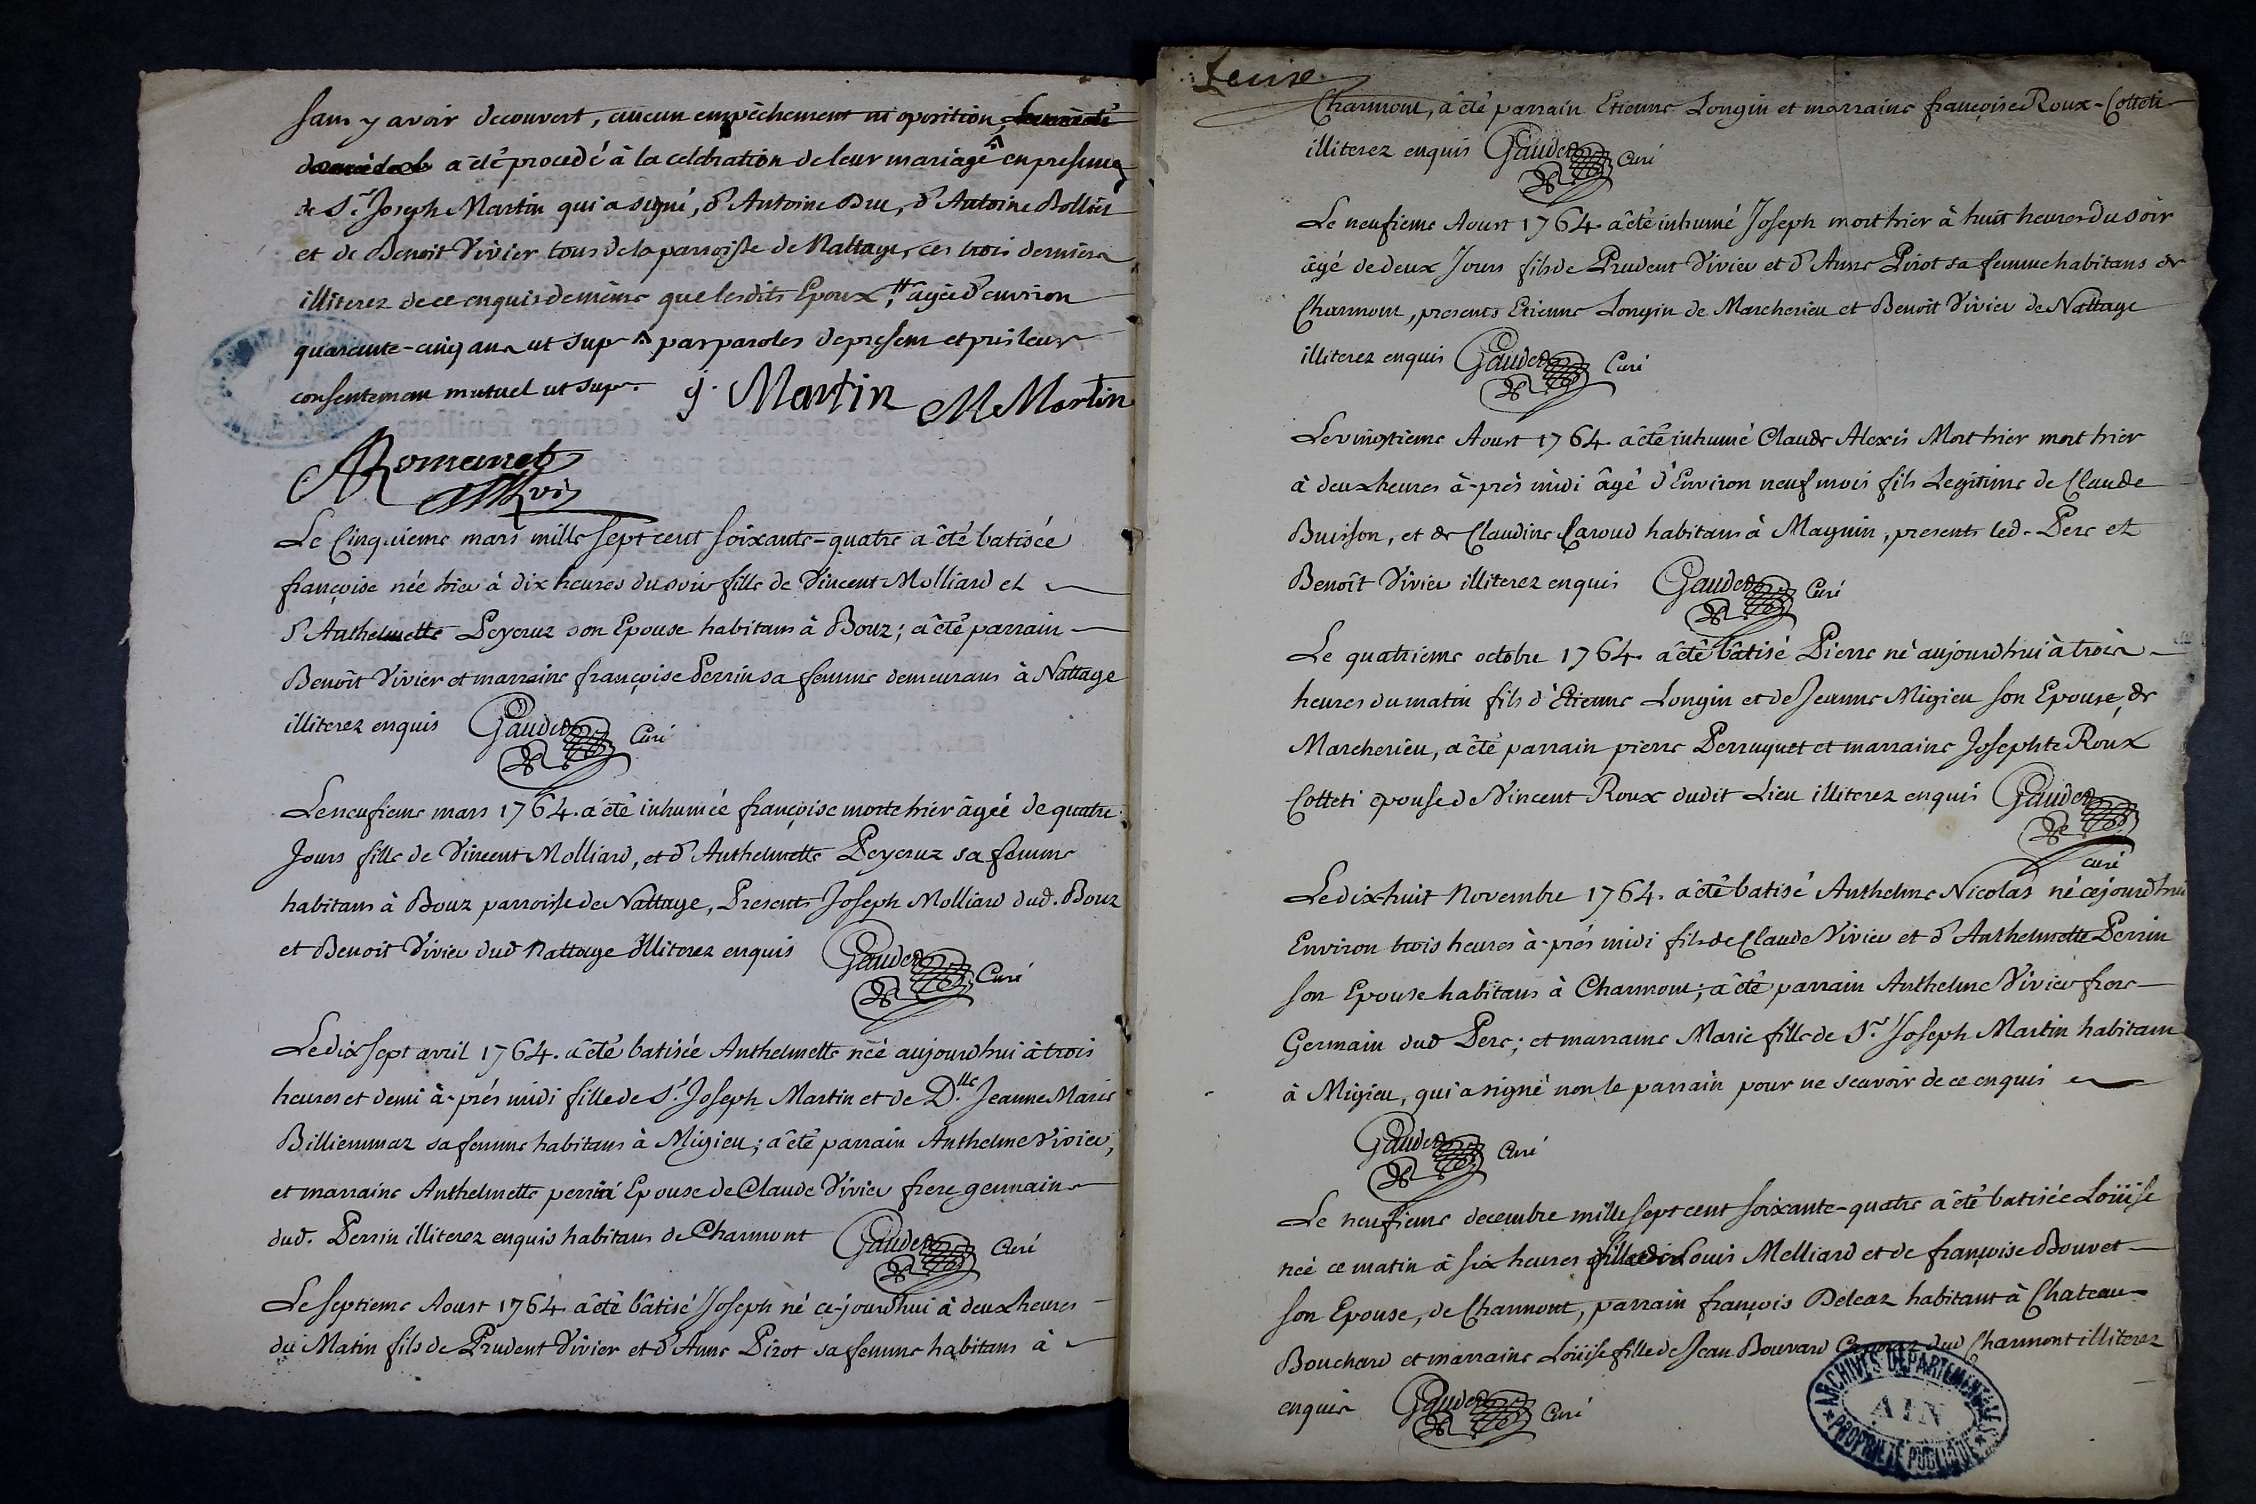 sans y avoir decouvert, aucun empêchement ni oposition,
a été procedé à la celebration de leur mariage en presence
de Sr. Joseph Martin qui a signé, d'Antoine Duc, d'Antoine Bollon
et de Benoit Vivier tous de la parroisse de Nattage, ces trois derniers
illiterez de ce enquis de même que lesdits Epoux, âgée d'environ
quarante-cinq ans ut supr par paroles de present et pris leur
consentement mutuel ut supr. j. Martin M Martin
Romanet
Le Cinquieme mars mille sept cent soixante-quatre a été batisée
françoise née hier à dix heures du soir fille de Vincent Molliard et
d'Anthelmette Peyeruz son Epouse habitans à Bouz; a été parrain
Benoît Vivier et marraine françoise Perrin sa femme demeurans à Nattage
illiterez enquis Gaudet Curé
Le neufieme mars 1764. a été inhumée françoise morte hier âgée de quatre
Jours fille de Vincent Molliard, et d'Anthelmette Peyeruz sa femme
habitans à Bouz parroisse de Nattage, Presents Joseph Molliard dud. Bouz
et Benoit Vivier dud Nattage illiterez enquis Gaudet Curé
Le dix sept avril 1764. a été batisée Anthelmette née aujourdhui à trois
heures et demi à-prés midi fille de Sr. Joseph Martin et de Dlle. Jeanne Marie
Billiemmaz sa femme habitans à Migieu; a été parrain Anthelme Vivier,
et marraine Anthelmette perrin Epouse de Claude Vivier frere germain
dud. Perrin illiterez enquis habitans de Charmont Gaudet Curé
Le septieme Aoust 1764 a été bâtisé Joseph né ce-jourdhui à deux heures
du Matin fils de Prudent Vivier et d'Anne Pirot sa femme habitans à
Charmont, a été parrain Etienne Longin et marraine françoise Roux-Colleti
illiterez enquis Gaudet Curé
Le neufieme Aoust 1764 a été inhumé Joseph mort hier à huit heures du soir
âgé de deux Jours fils de Prudent Vivier et d'Anne Pirot sa femme habitans de
Charmont, presents Etienne Longin de Marcherieu et Benoît Vivier de Nattage
illiterez enquis Gaudet Curé
Le vingtieme Aoust 1764. a été inhumé Claude Alexis Mort hier mort hier
à deux heures à-prés midi âgé d'Environ neuf mois fils Legitime de Claude
Buisson, et de Claudine Caroud habitans à Magnin, presents led. Pere et
Benoît Vivier illiterez enquis Gaudet Curé
Le quatrieme octobre 1764. a été bâtisé Pierre né aujourdhui à trois
heures du matin fils d'Etienne Longin et de Jeanne Migieu son Epouse, de
Marcherieu, a été parrain pierre Perruquet et marraine Josephte Roux
Colleti epouse de Vincent Roux dudit Lieu illiterez enquis Gaudet
Curé
Le dix-huit Novembre 1764. a été batisé Anthelme Nicolas né cejourdhui
Environ trois heures à-prés midi fils de Claude Vivier et d'Anthelmette Perrin
son Epouse habitans à Charmont; a été parrain Anthelme Vivier frere
Germain dud Pere; et marraine Marie fille de Sr. Joseph Martin habitans
à Migieu, qui a signé non le parrain pour ne scavoir de ce enquis
Gaudet Curé
Le neufieme decembre mille sept cent soixante-quatre a été batisée Loüise
née ce matin à six heures fille de Louis Melliard et de françoise Bouvet
son Epouse, de Charmont, parrain françois Deleaz habitant à Chateau-
Bouchard et marraine Loüise fille de Jean Bouvard dud Charmont illiterez
enquis Gaudet Curé
ARCHIVES DEPARTEMENTALES
AIN
PROPRIETE PUBLIQUE